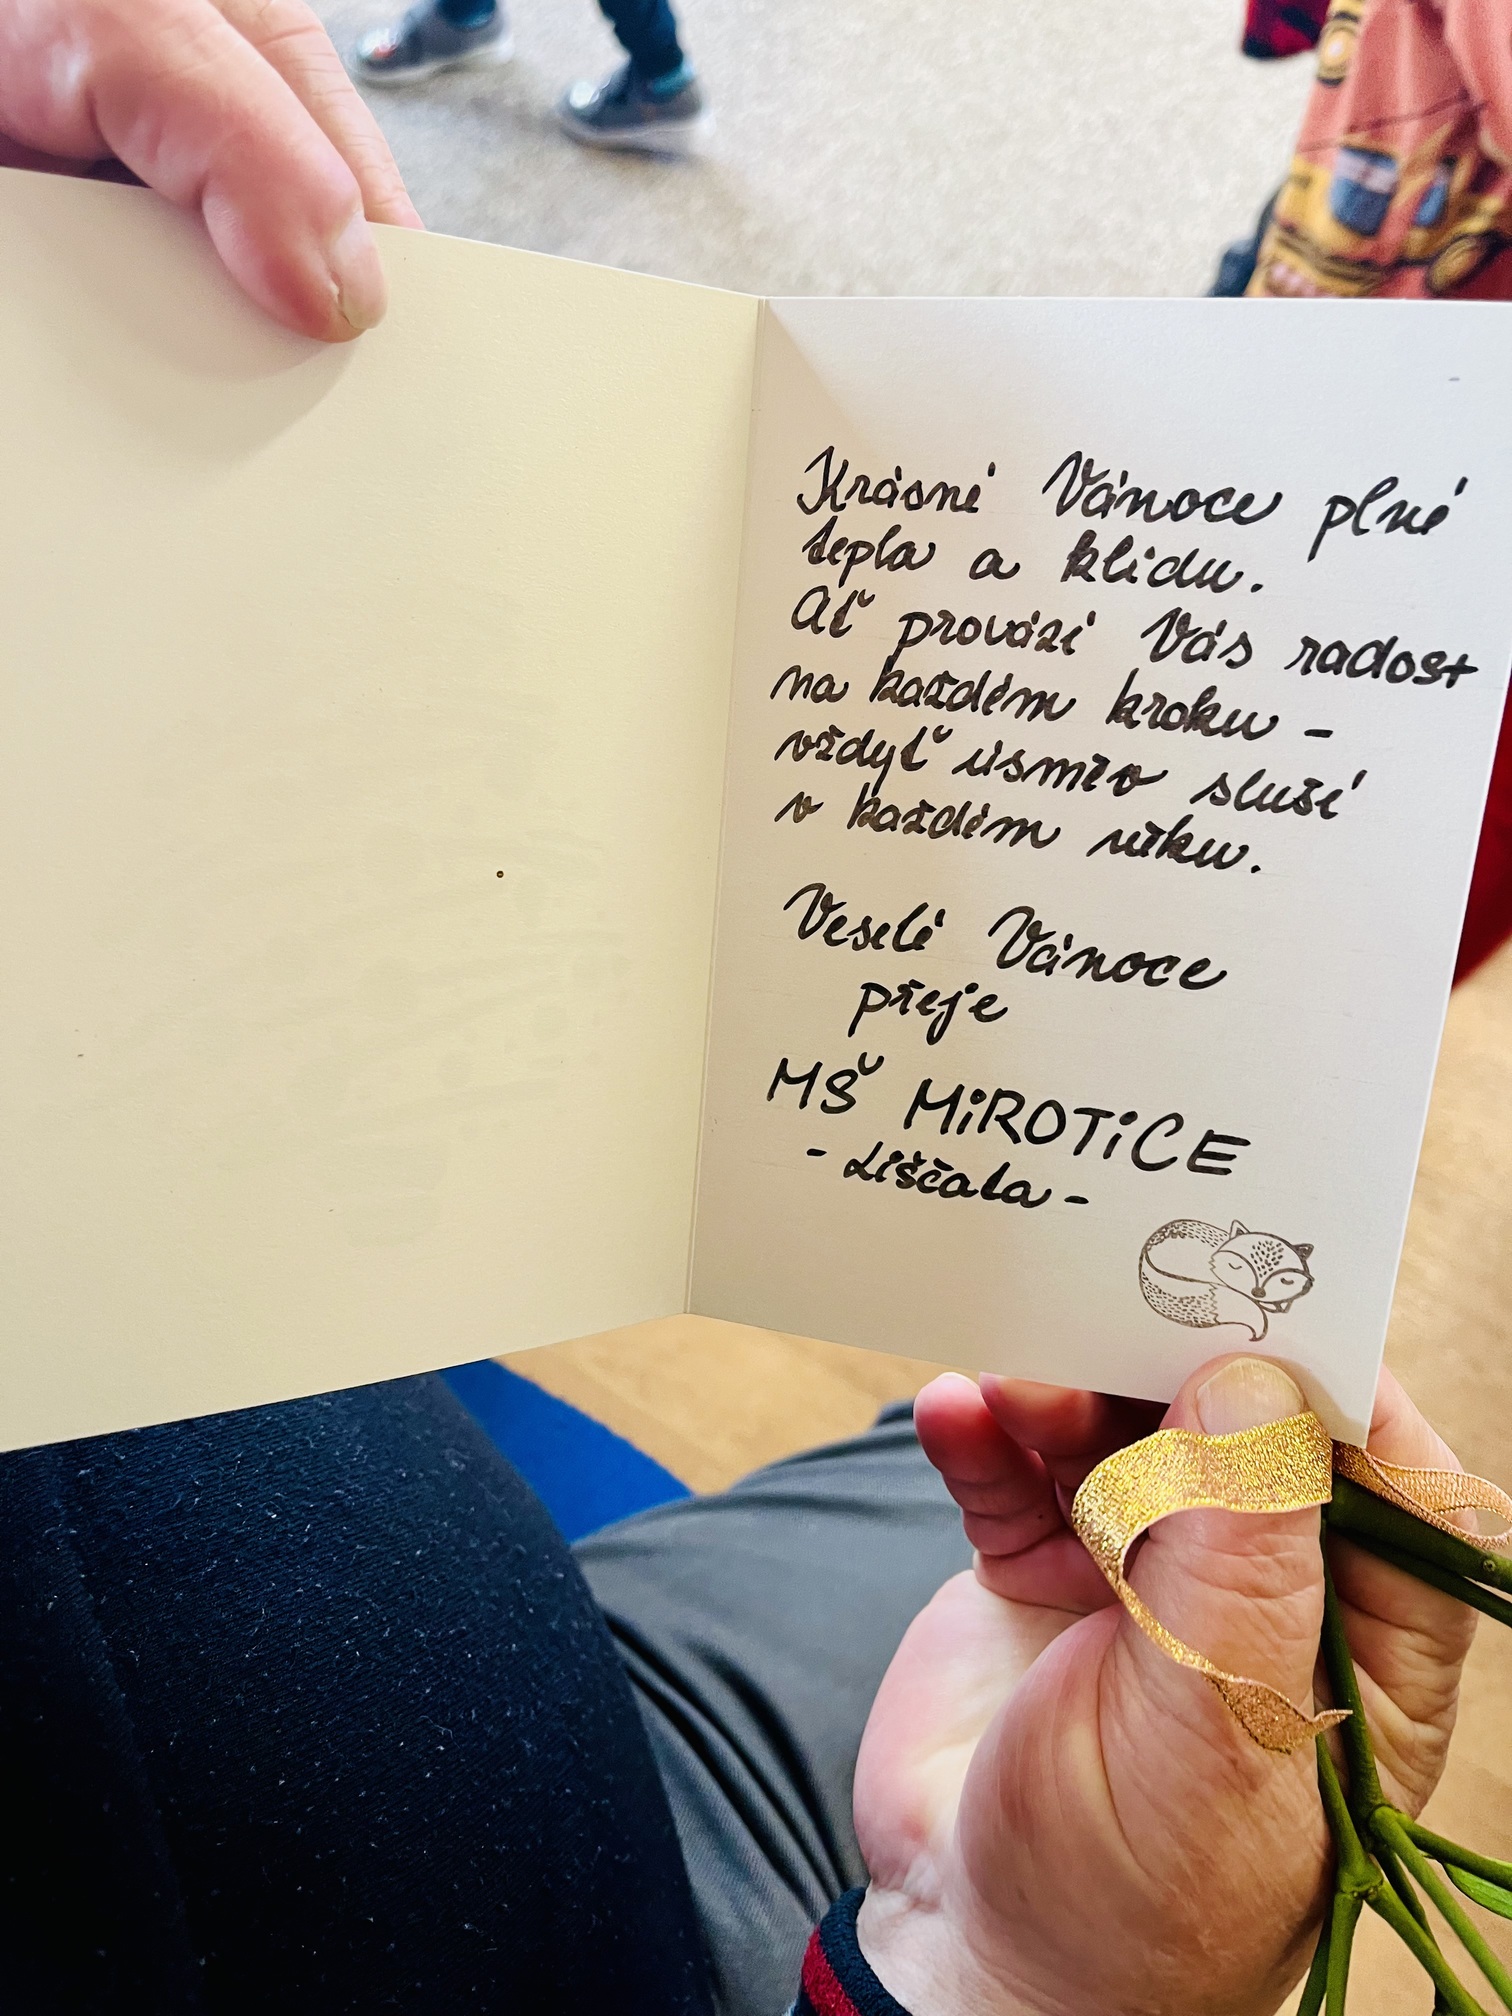 Krásné Vánoce plné
tepla a klidu.
Ať provází Vás radost
na každém kroku -
vždyť úsměv sluší
v každém věku.
Veselé Vánoce
přeje
MŠ MiROTiCE
- Lišťata -